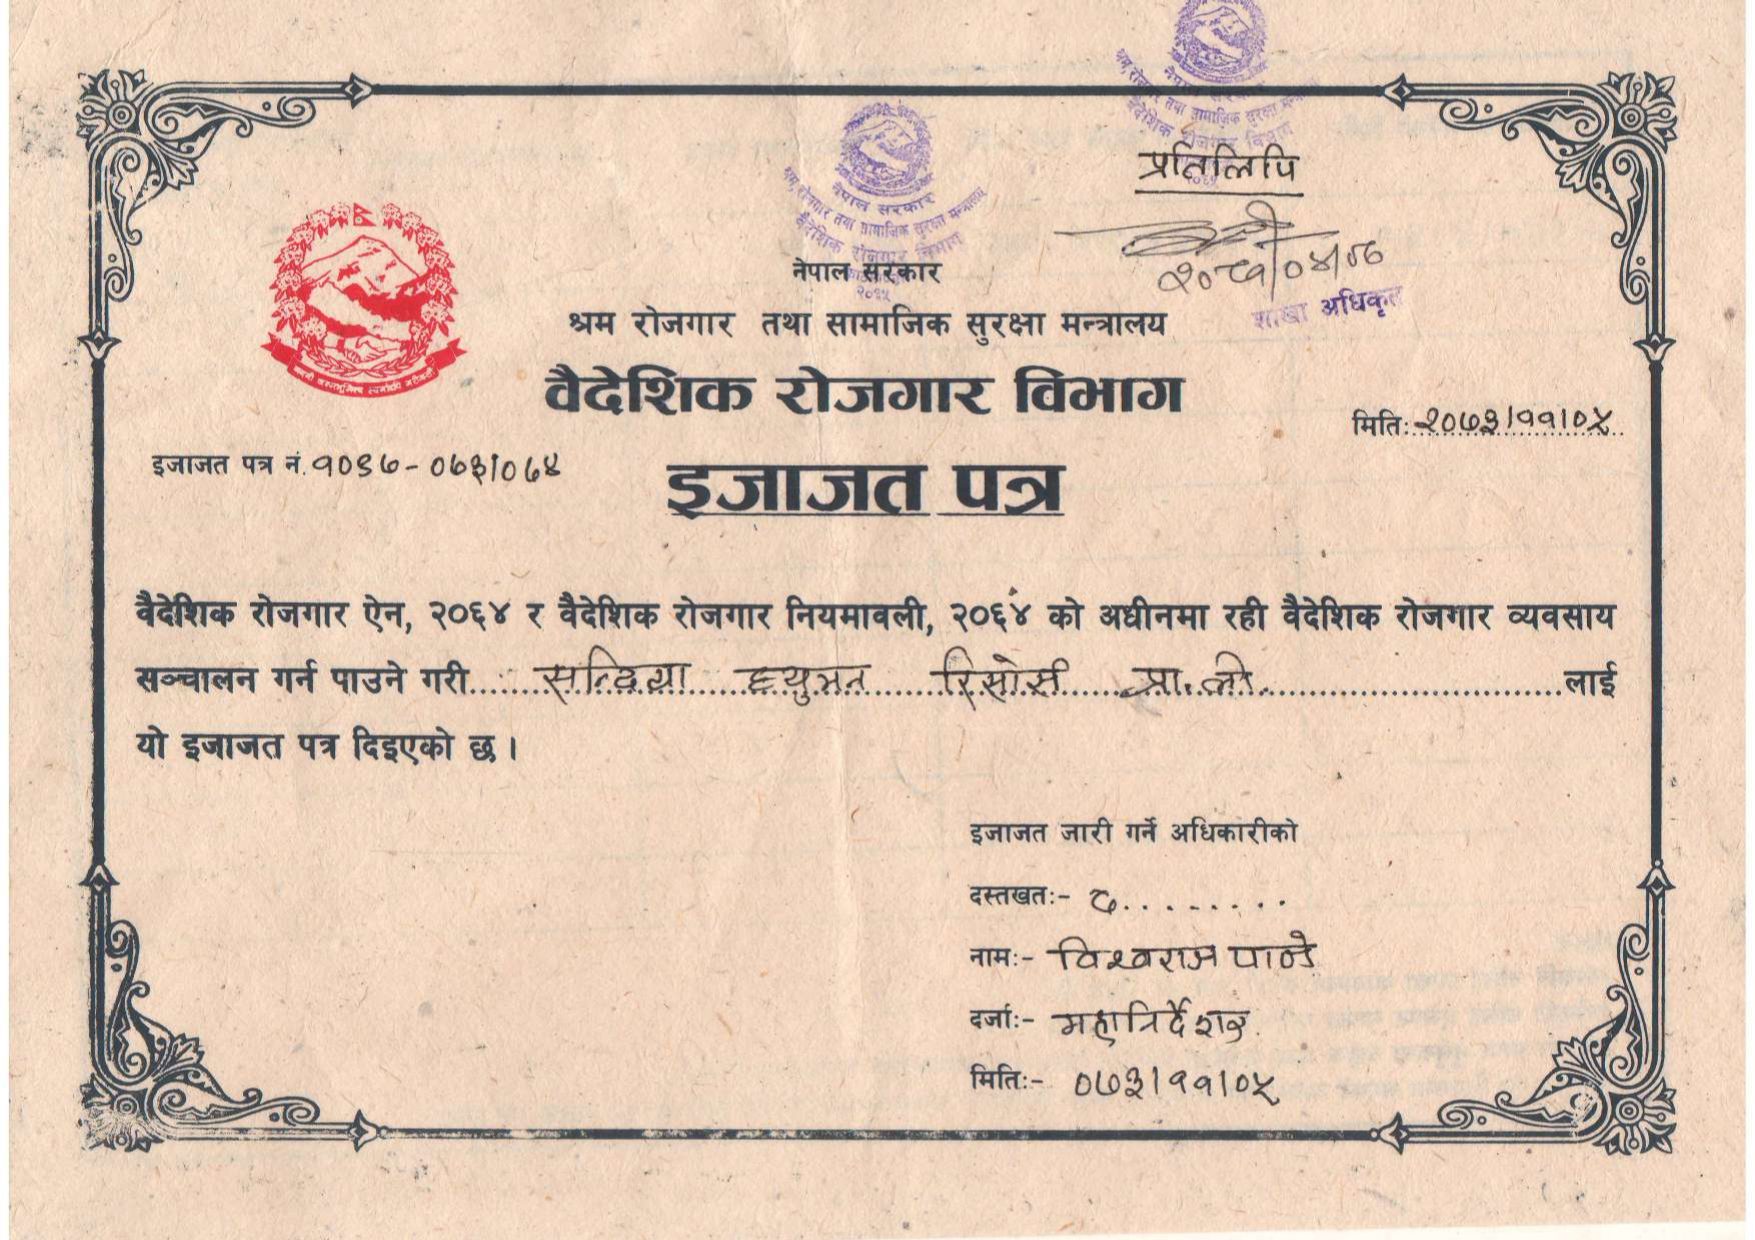 नेपाल सरकार
श्रम, रोजगार तथा सामाजिक सुरक्षा मन्त्रालय
वैदेशिक रोजगार विभाग
नेपाल सरकार
श्रम, रोजगार तथा सामाजिक सुरक्षा मन्त्रालय
वैदेशिक रोजगार विभाग
२०६५
प्रतिलिपि
शाखा अधिकृत
नेपाल सरकार
श्रम रोजगार तथा सामाजिक सुरक्षा मन्त्रालय
वैदेशिक रोजगार विभाग
मिति: २०७३।११।०५
इजाजत पत्र नं. १०९७-०७३।०७४
इजाजत पत्र
वैदेशिक रोजगार ऐन, २०६४ र वैदेशिक रोजगार नियमावली, २०६४ को अधीनमा रही वैदेशिक रोजगार व्यवसाय
सञ्चालन गर्न पाउने गरी ह्युमन रिसोर्स प्रा.ली. लाई
यो इजाजत पत्र दिइएको छ ।
इजाजत जारी गर्ने अधिकारीको
दस्तखत:- द.........
नाम:- विश्वराज पाण्डे
दर्जा:- महानिर्देशक
मिति:- ०७३।११।०५